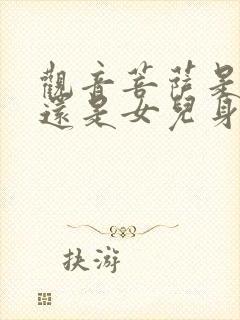 觀音菩薩是
還是女兒身
扶游